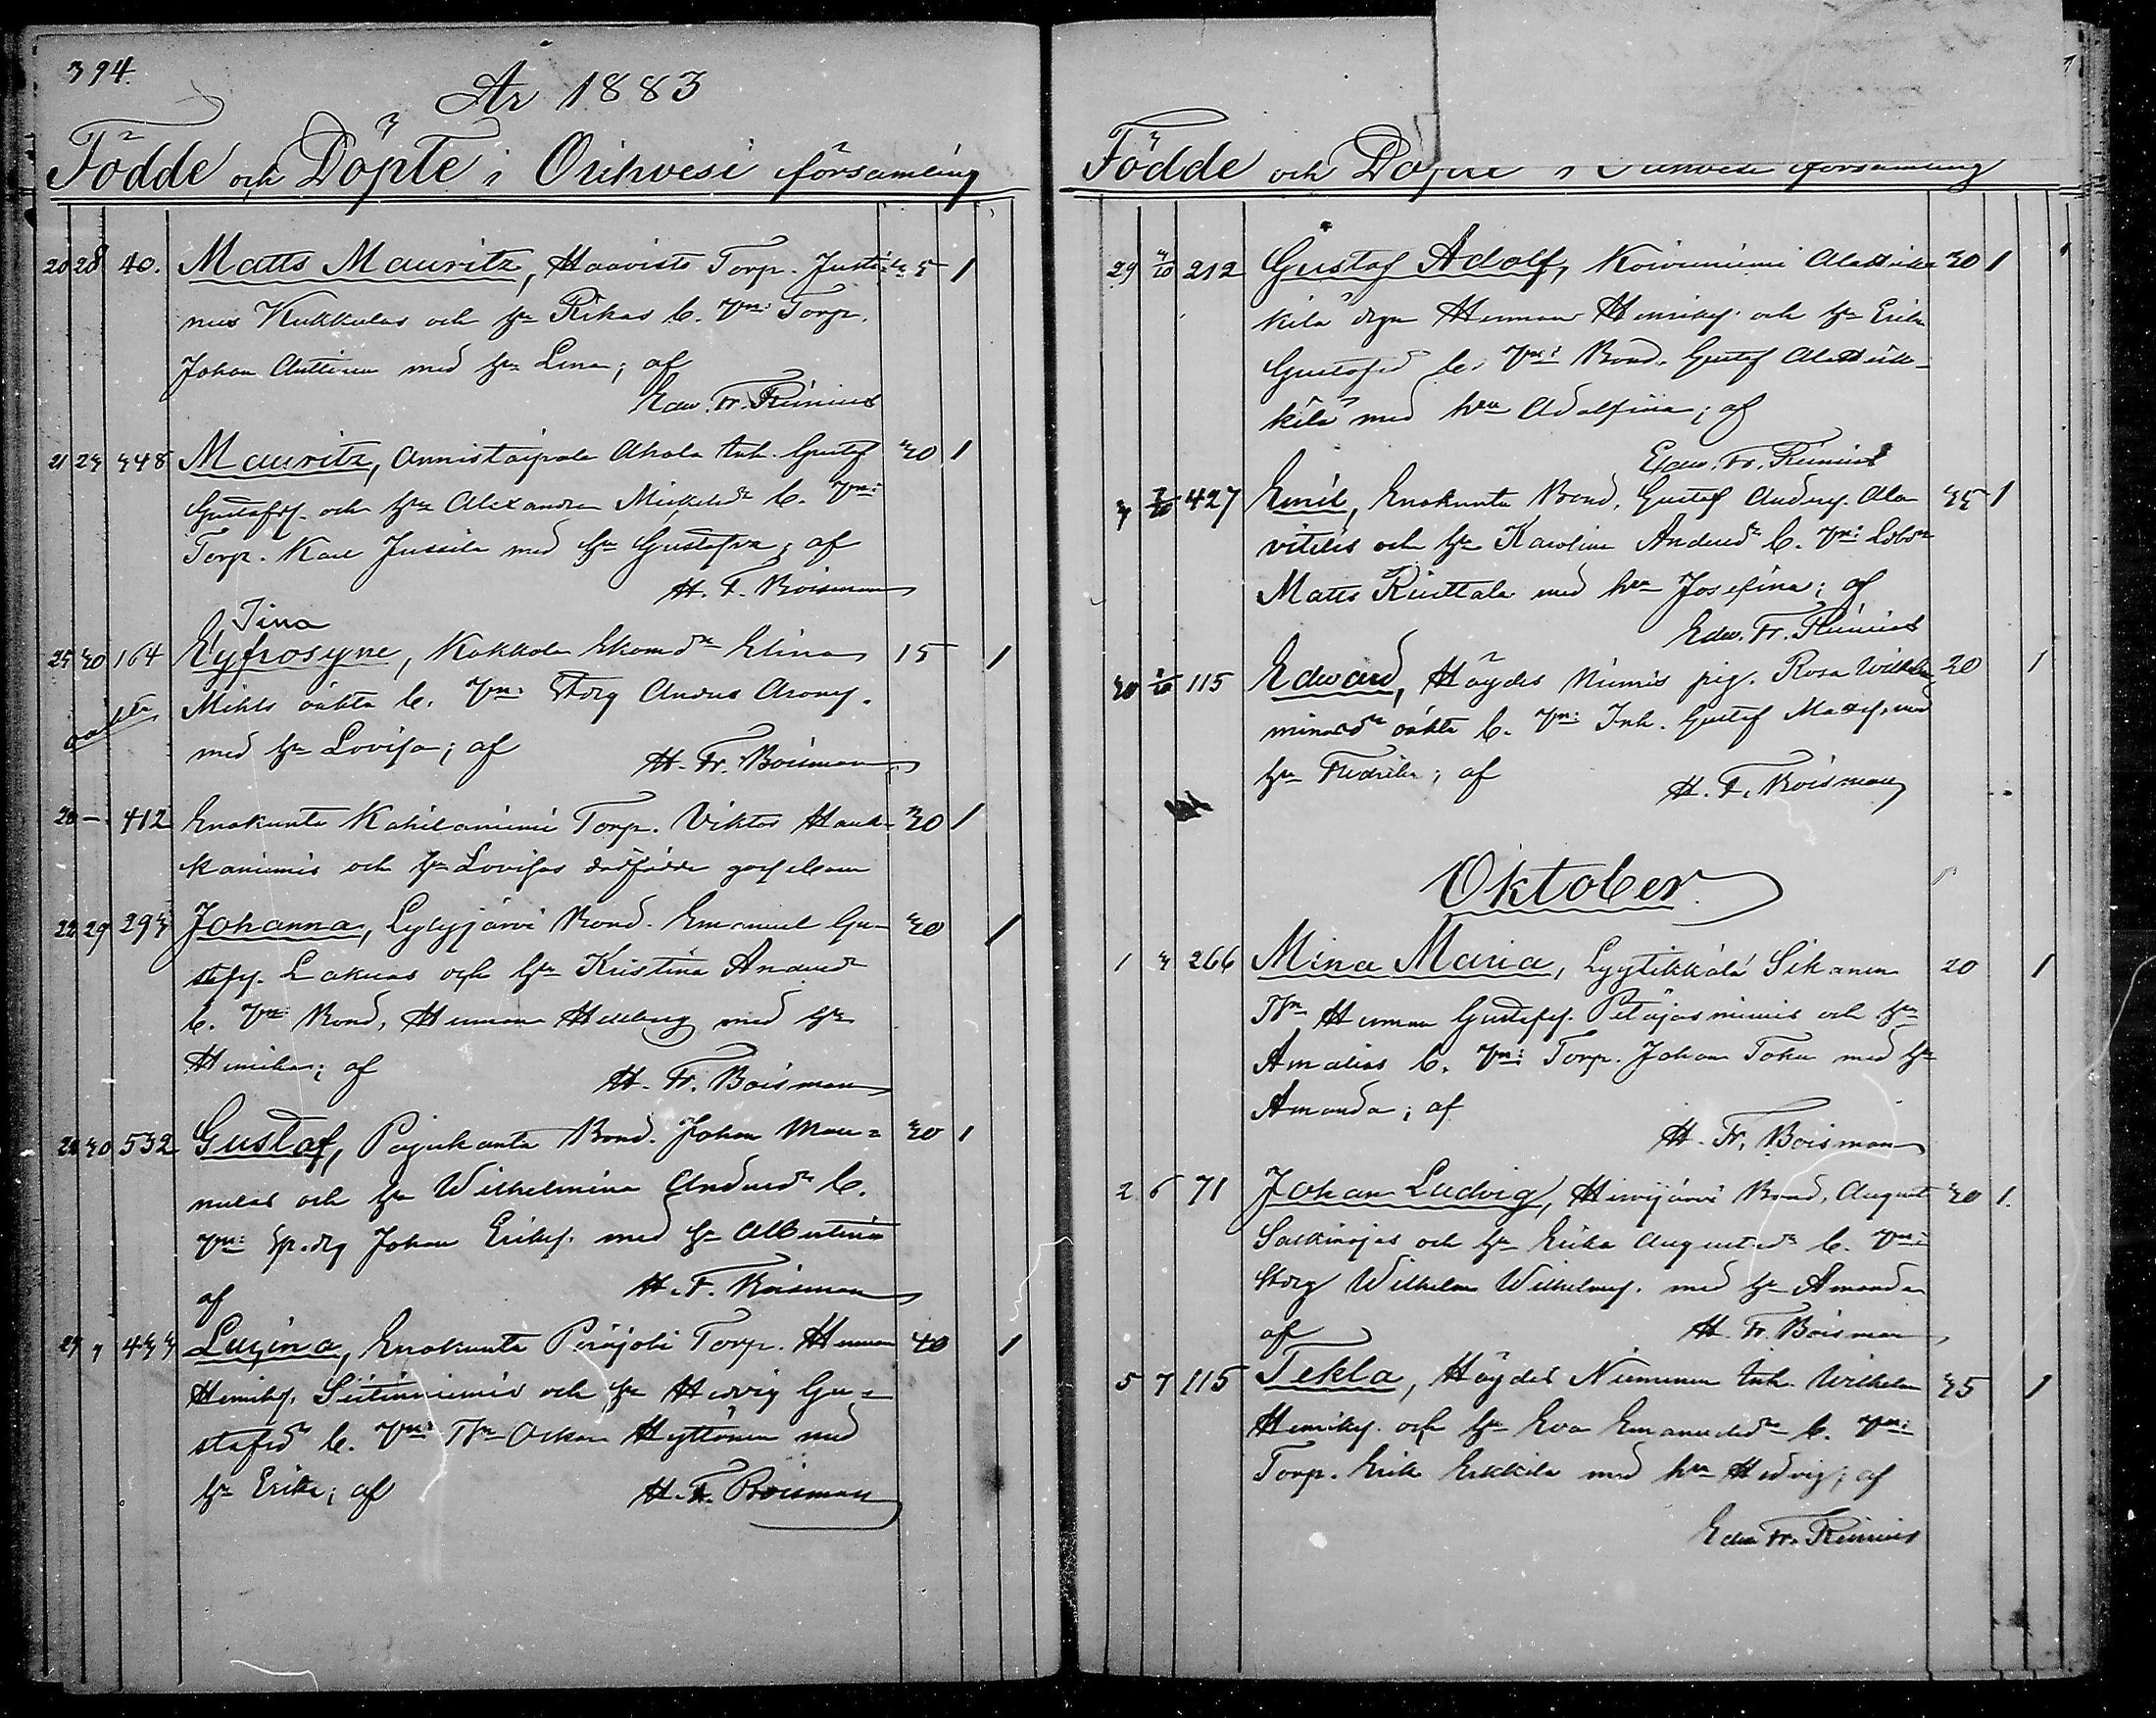 394.
År 1883
Födde och Döpte i Orihvesi församling
20 28 40. Matts Mauritz, Haavisto Torp. Justi= 5 1
nus Kukkolas och hu Rikas b. Vn: Torp.
Johan Anttinen med hu Lena; af
Edw. Fr. Rimius
21 23 348 Mauritz, Onnistaipale Ahola Inh. Gustaf 30 1
Gustafss. och hu Alexandra Mickelsdr b. Vn:
Torp. Karl Jussila med hu Gustafva; af
H. F. Boisman
Tina
25 30 164 Eyfrosyne, Kokkola Elina 15 1
Mikls oäkta b. Vn: Andrs Arons.
med hu Lovisa; af
H. Fr. Boisman
28 — 412 Enokunta Kahilaniemi Torp. Viktor Hauk= 30 1
kaniemis och hu Lovisas dödfödde gossebarn
22 29 293 Johanna, Lylyjärvi Bond. Emanuel Gu= 30 1
stafss. Lakuas och hu Kristina Andersdr
b. Vn: Bond. Herman Hellberg med hu
Henrika; af
H. Fr. Boisman
28 30 532 Gustaf, Pajukanta Bond. Johan Man= 30 1
nilas och hu Wilhelmina Andersdr b.
Vn: Johan Erikss. med hu Albertina
af H. F. Boisman
29 7 433 Lusina, Enokunta Peräjoki Torp. Herman 40 1
Henrikss. Siitinniemis och hu Hedvig Gu=
stafsdr b. Vn: Oskar Hyttönen med
hu Erika; af
H. F. Boisman
Födde och Döpte i församling
29 3/10 212 Gustaf Adolf, Koivuniemi 30 1
kilä Herman Henrikss. och hu Erika
Gustafsd b. Vn: Bond. Gustaf
kilä med hu Adolfina; af
Edw. Fr. Rimius
7/10 427 Emil, Enokunta Bond. Gustaf Anderss. Ala 35 1
vitilis och hu Karolina Andersdr b. Vn:
Matts Rinttala med hu Josefina; af
Edw. Fr. Rimius
30 115 Edward, Höydes Niemis pig. Rosa Wilhel= 20 1
minasdr oäkta b. Vn: Inh. Gustaf Matss. med
hu Fredrika; af
H. F. Boisman
Oktober
1 3 266 Mina Maria, Lyytikkälä Sikanen 20 1
Herman Gustafss. Petäjäsniemis och hu
Amalias b. Vn: Torp. Johan Toka med hu
Amanda; af
H. Fr. Boisman
2 6 71 Johan Ludvig, Hirvijärvi Bond. August 30 1.
Salkinojas och hu Erika Augustsdr b. Vn:
Wilhelm Wilhelmss. med hu Amanda
af H. Fr. Boisman
5 7 115 Tekla, Höydes Nieminen Inh. Wilhelm 35 1
Henrikss. och hu Eva Emanuelsdr b. Vn:
Torp. Erik Erkkilä med hu Hedvig; af
Edw. Fr. Rimius